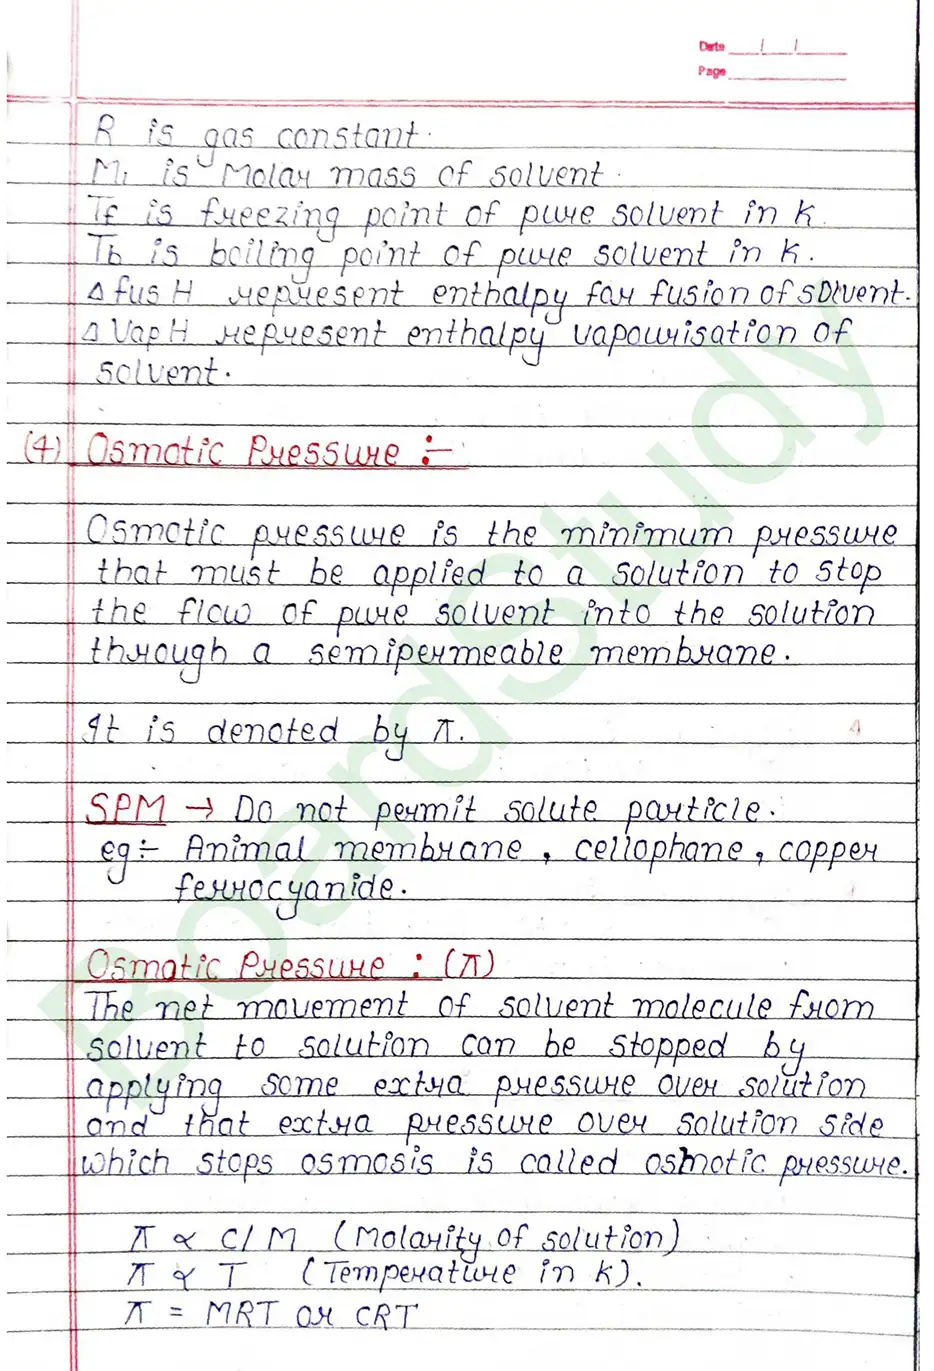 Date / /
Page
R is gas constant.
M₁ is Molar mass of solvent.
Tf is freezing point of pure solvent in K.
Tb is boiling point of pure solvent in K.
Δ fus H represent enthalpy for fusion of solvent.
Δ Vap H represent enthalpy vapourisation of
solvent.
(4) Osmotic Pressure :-
Osmotic pressure is the minimum pressure
that must be applied to a solution to stop
the flow of pure solvent into the solution
through a semipermeable membrane.
It is denoted by π.
SPM → Do not permit solute particle.
eg:- Animal membrane, cellophane, copper
ferrocyanide.
Osmotic Pressure : (π)
The net movement of solvent molecule from
solvent to solution can be stopped by
applying some extra pressure over solution
and that extra pressure over solution side
which stops osmosis is called osmotic pressure.
π ∝ C/M (Molarity of solution)
π ∝ T (Temperature in K).
π = MRT or CRT
BoardStudy